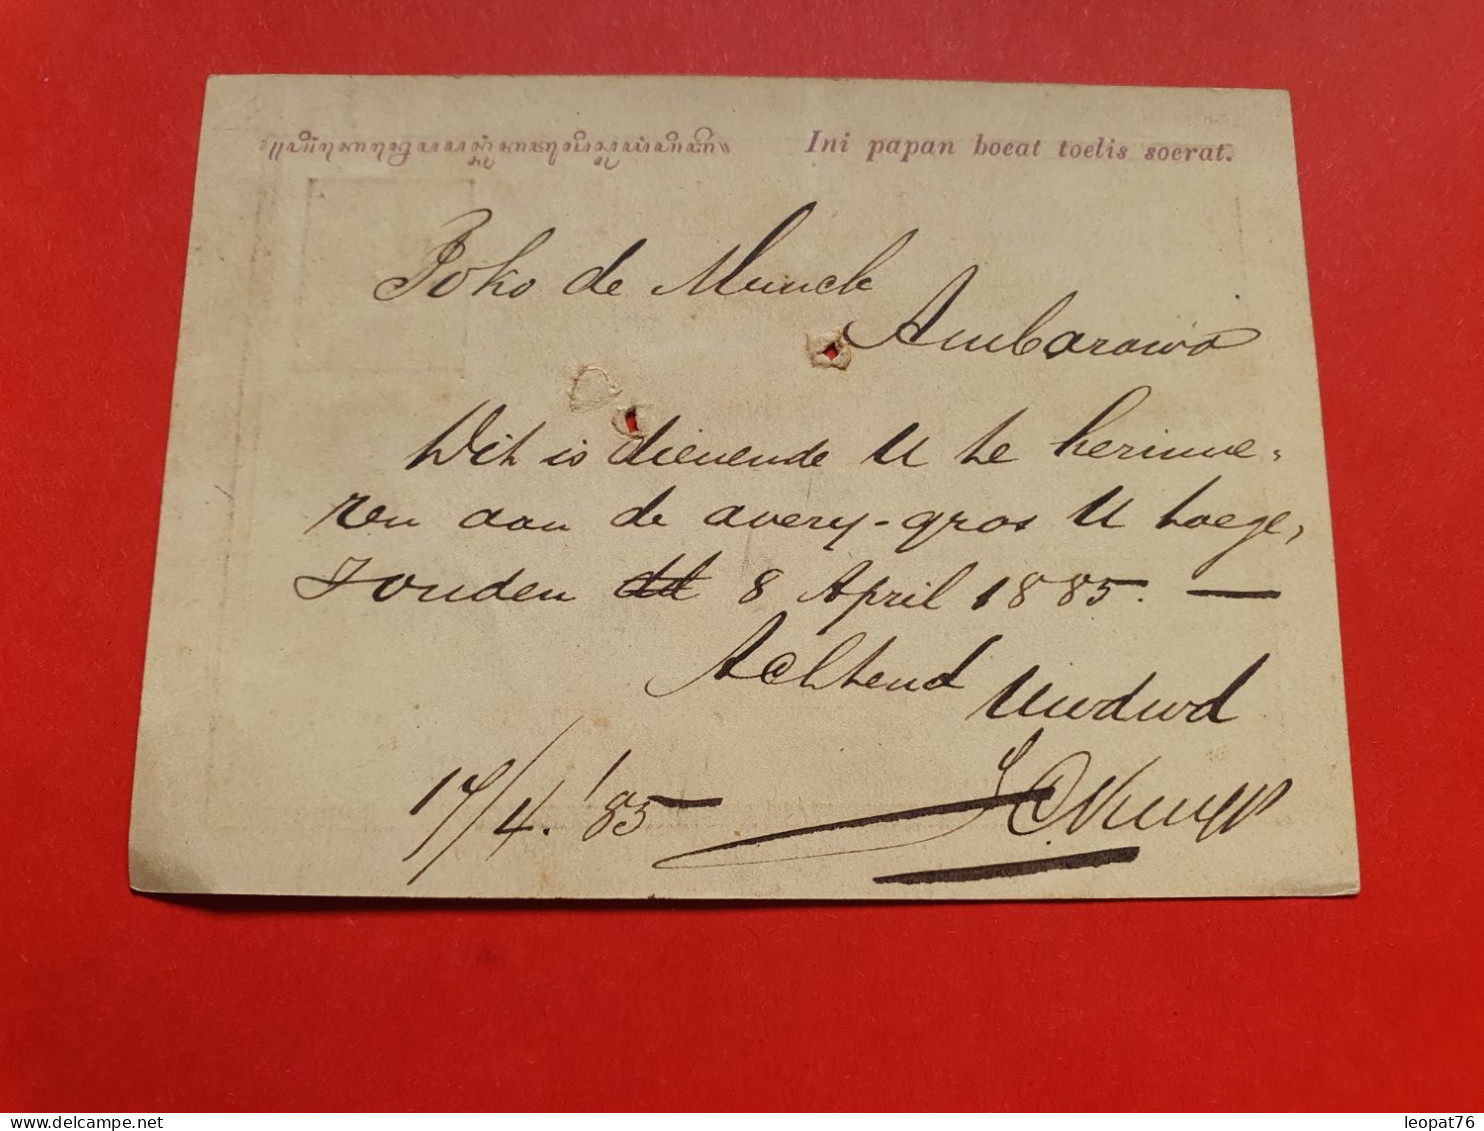 Ini papan boeat toelis soerat.
Toko de Munck
Ambarawa
Dit is dienende U te herinne-
ren aan de avery-gros U toege-
zonden dd 8 April 1885. —
Achtend
Uwdwd
17/4 '85
leopat76